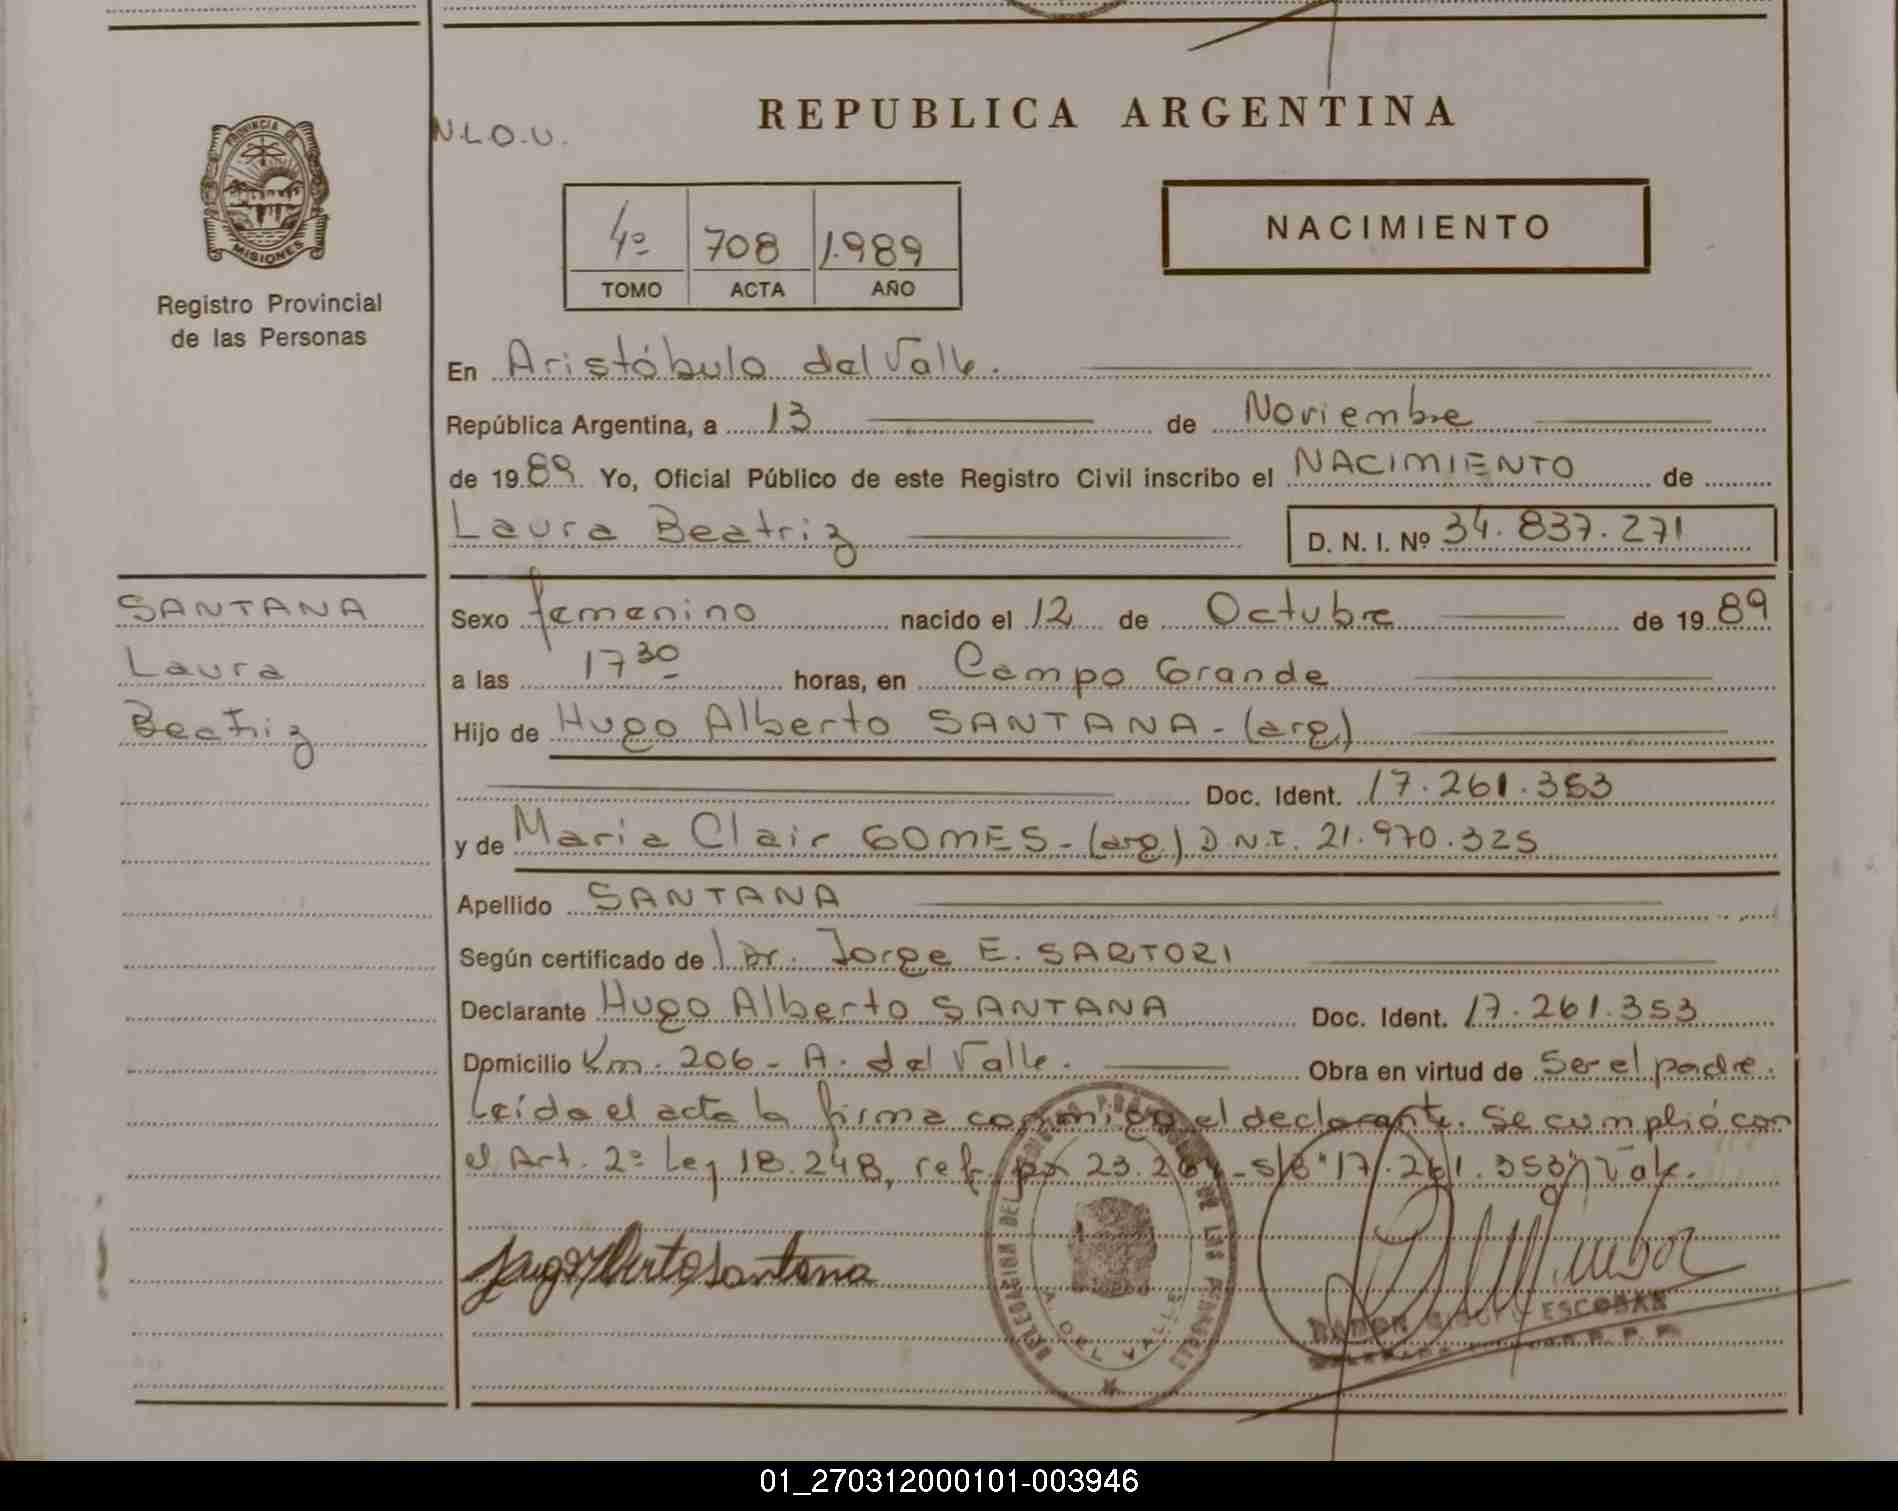 REPUBLICA ARGENTINA
N.L.O.U.
PROVINCIA DE
MISIONES
Registro Provincial
de las Personas
4º 708 1.989
TOMO ACTA AÑO
NACIMIENTO
En Aristóbulo del Valle.
República Argentina, a 13 de Noviembre
de 1989 Yo, Oficial Público de este Registro Civil inscribo el NACIMIENTO de
Laura Beatriz D. N. I. Nº 34.837.271
SANTANA
Laura
Beatriz
Sexo femenino nacido el 12 de Octubre de 1989
a las 17 30 horas, en Campo Grande
Hijo de Hugo Alberto SANTANA - (arg)
Doc. Ident. 17.261.353
y de Maria Clair GOMES - (arg) D.N.I. 21.970.325
Apellido SANTANA
Según certificado de Dr. Jorge E. SARTORI
Declarante Hugo Alberto SANTANA Doc. Ident. 17.261.353
Domicilio Km. 206 - A. del Valle. Obra en virtud de Ser el padre.
Leída el acta la firma conmigo el declarante. Se cumplió con
el Art. 2º Ley 18.248, ref. por 23.264 - s/b "17.261.353" Vale.
Hugo Alberto Santana
DELEGACION DEL REGISTRO PROVINCIAL DE LAS PERSONAS
A. DEL VALLE
RAMON ESCOBAR
01_270312000101-003946